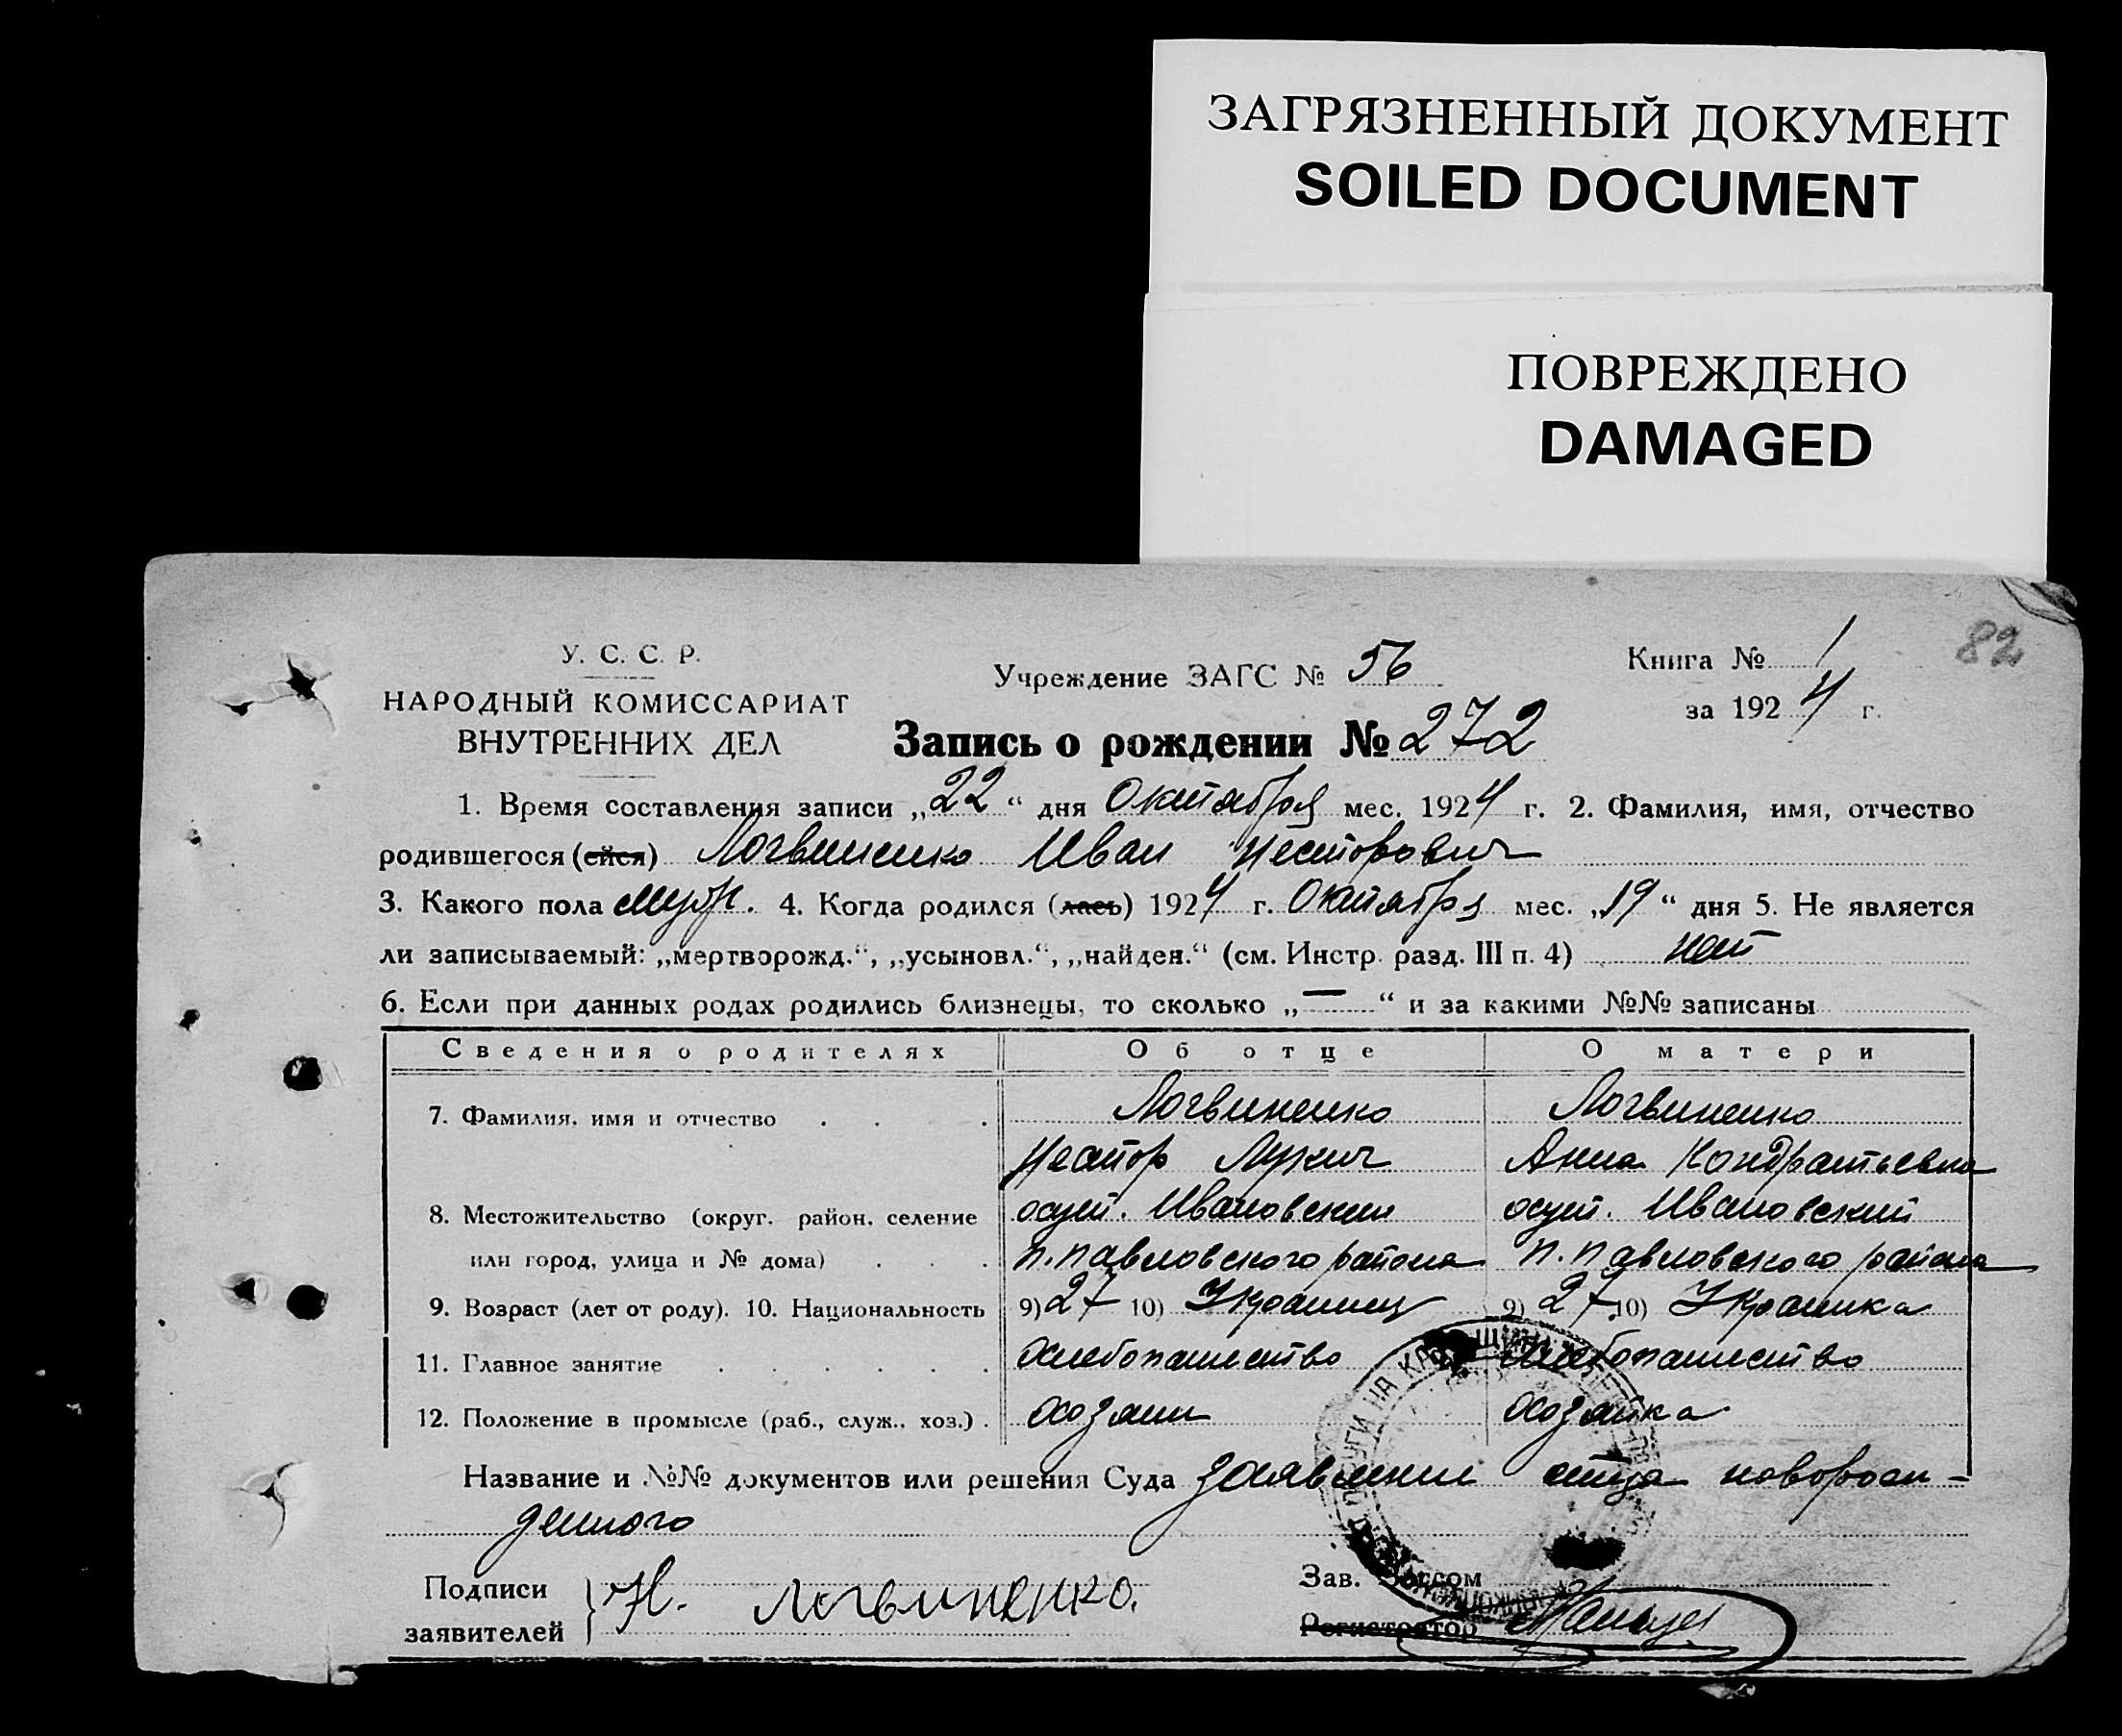 ЗАГРЯЗНЕННЫЙ ДОКУМЕНТ
SOILED DOCUMENT
ПОВРЕЖДЕНО
DAMAGED
82
У. С. С. Р.
НАРОДНЫЙ КОМИССАРИАТ
ВНУТРЕННИХ ДЕЛ
Учреждение ЗАГС № 56
Книга № 1
за 1924 г.
Запись о рождении № 272
1. Время составления записи „22“ дня Октября мес. 1924 г. 2. Фамилия, имя, отчество
родившегося (ейся) Логвиненко Иван Несторович
3. Какого пола муж. 4. Когда родился (лась) 1924 г. Октября мес. „19“ дня 5. Не является
ли записываемый: „мертворожд.“, „усыновл.“, „найден.“ (см. Инстр. разд. III п. 4) нет
6. Если при данных родах родились близнецы, то сколько „—“ и за какими №№ записаны
Сведения о родителях Об отце О матери
7. Фамилия, имя и отчество Логвиненко Логвиненко
Нестор Лукич Анна Кондратьевна
8. Местожительство (округ. район. селение Ивановский Ивановский
или город, улица и № дома) п. павловского района п. павловского района
9. Возраст (лет от роду). 10. Национальность 9) 27 10) Украинец 9) 27 10) Украинка
11. Главное занятие хлебопашество хлебопашество
12. Положение в промысле (раб., служ., хоз.) хозяин хозяйка
Название и №№ документов или решения Суда заявление отца новорож-
денного
Подписи
заявителей
Н. Логвиненко.
Зав. Загсом
Регистратор